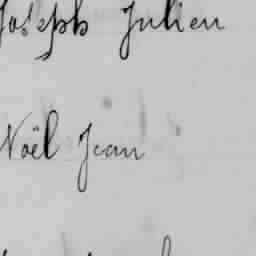 Joseph Julien
Noël Jean